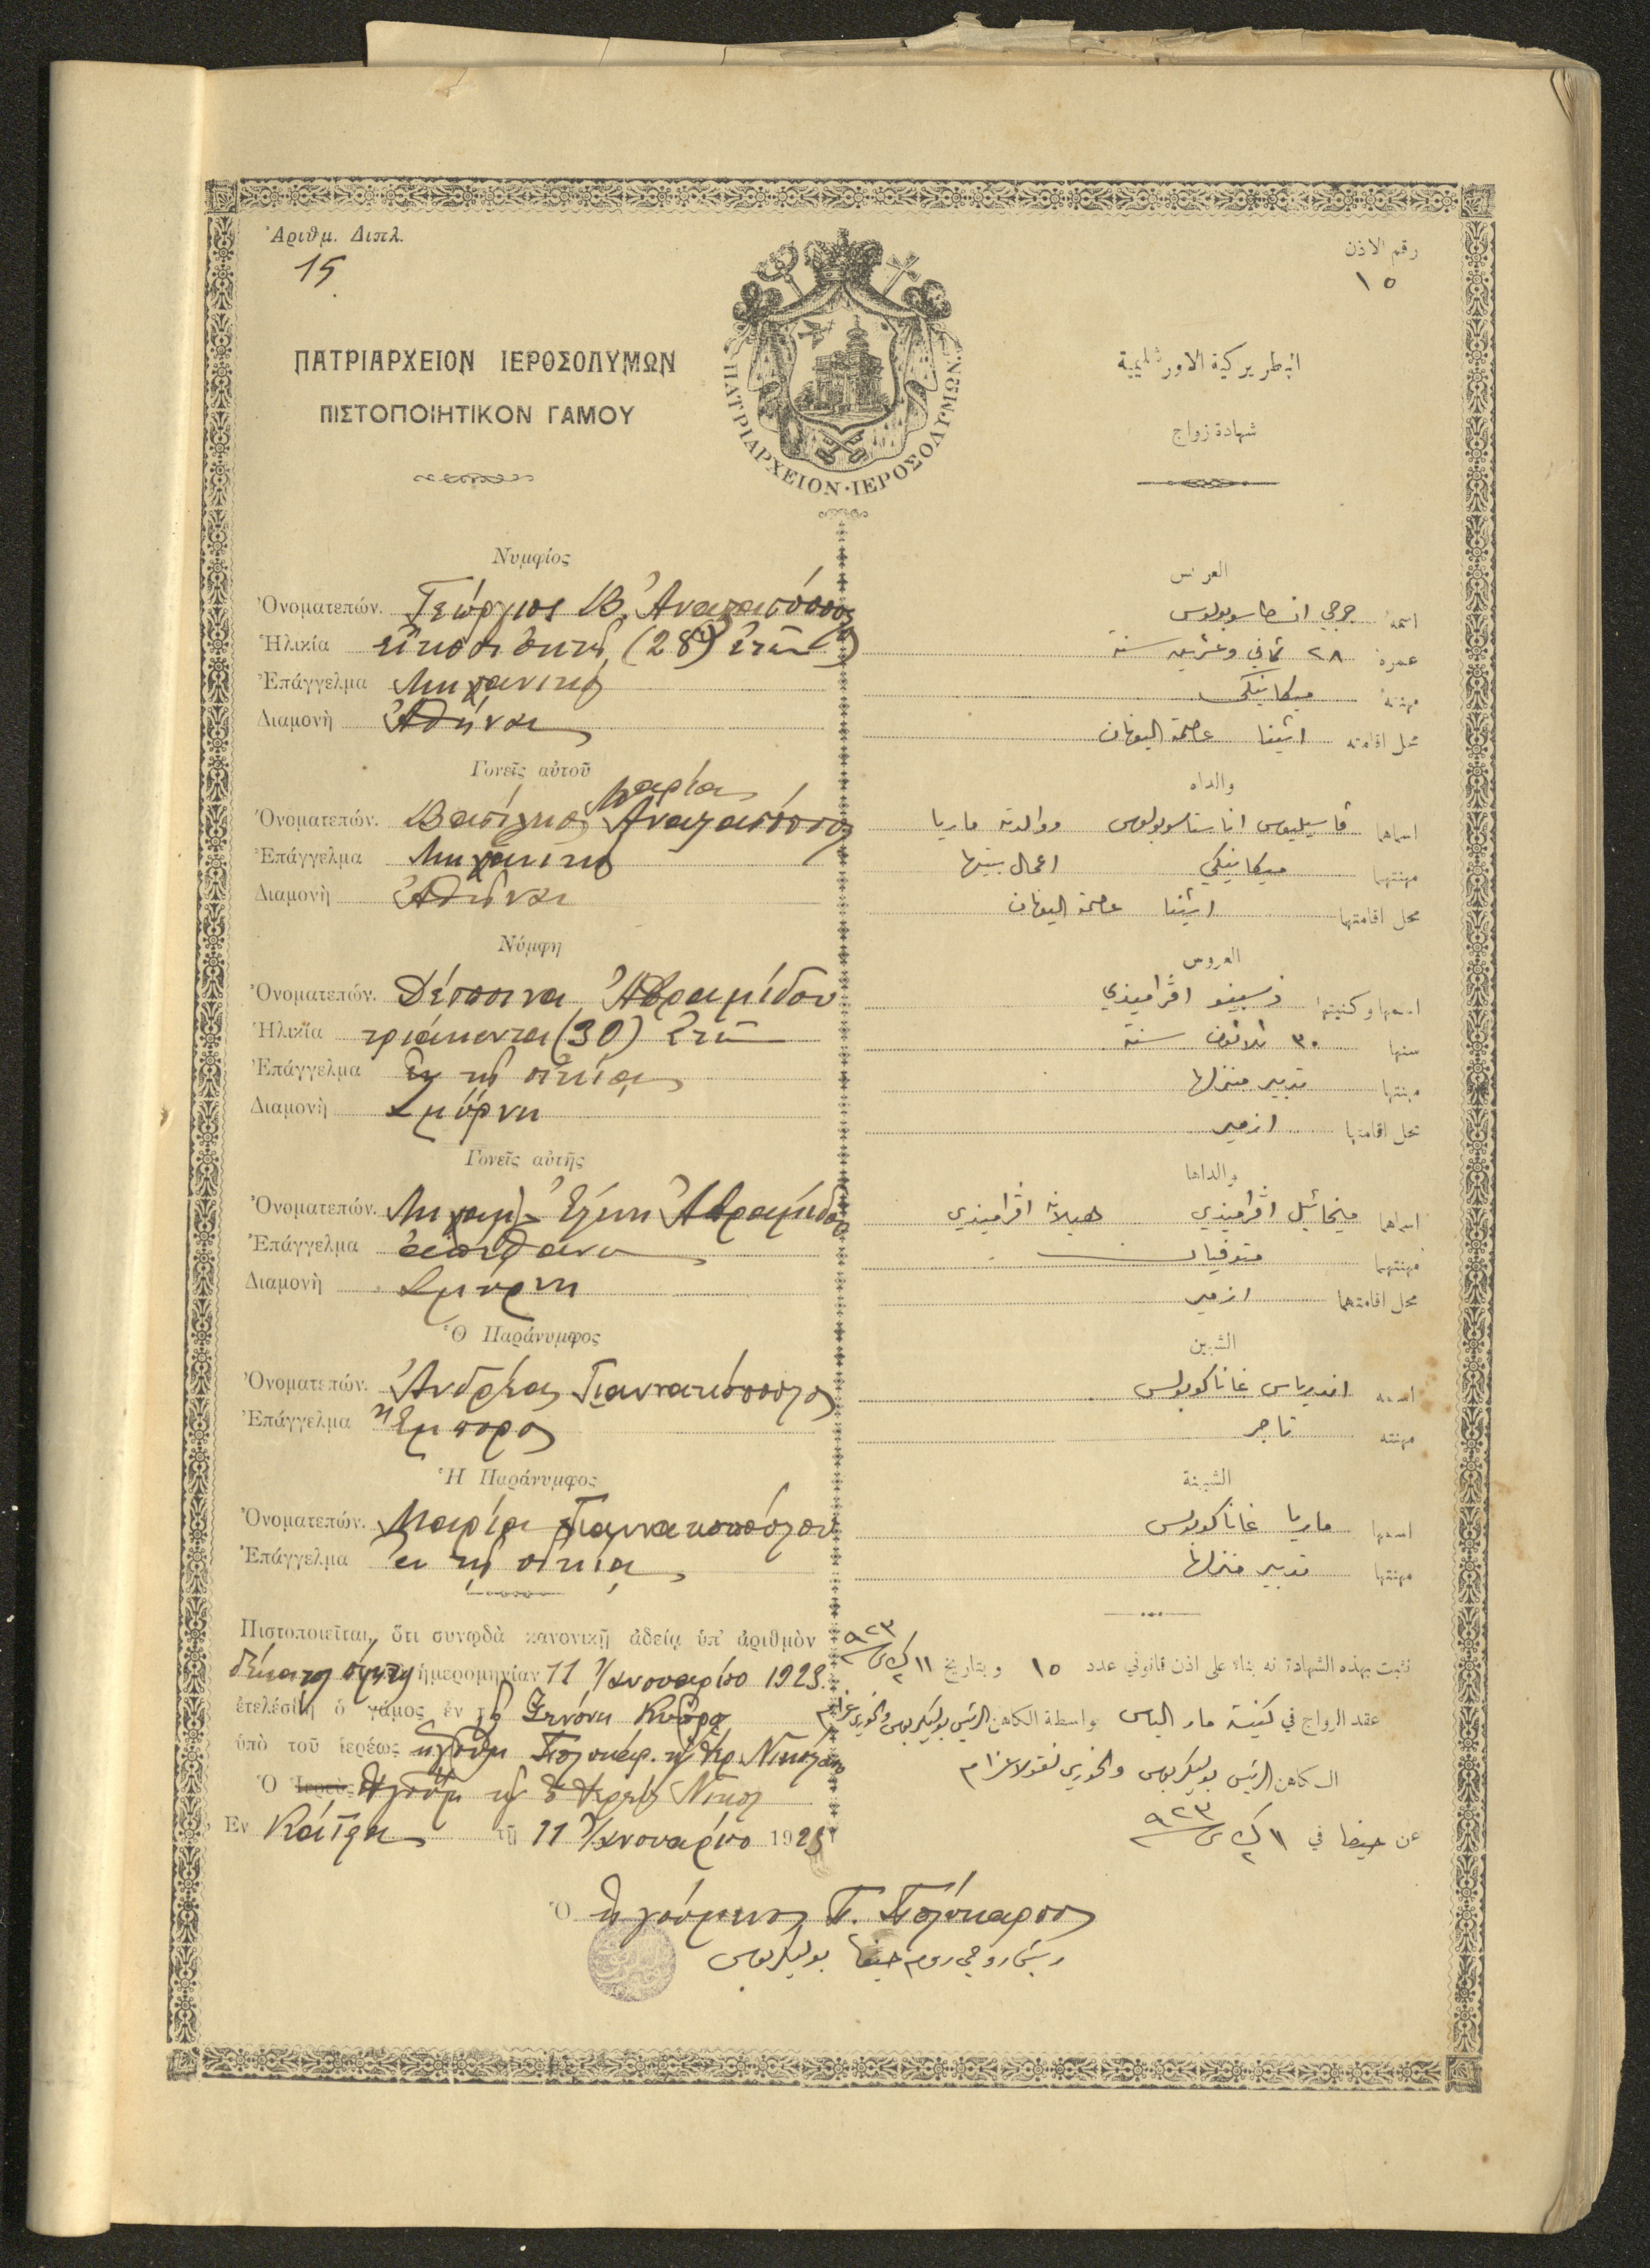 Ἀριθμ. Διπλ.
15
رقم الاذن
١٥
ΠΑΤΡΙΑΡΧΕΙΟΝ ΙΕΡΟΣΟΛΥΜΩΝ
ΠΙΣΤΟΠΟΙΗΤΙΚΟΝ ΓΑΜΟΥ
ΠΑΤΡΙΑΡΧΕΙΟΝ·ΙΕΡΟΣΟΛΥΜΩΝ
البطريركية الاورشليمية
شهادة زواج
Νυμφίος
Ὀνοματεπών. Γεώργιος Β. Ἀναστασόπουλος
Ἡλικία εἴκοσι ὀκτὼ (28) ἐτῶν
Ἐπάγγελμα Μηχανικὸς
Διαμονὴ Ἀθῆναι
Γονεῖς αὐτοῦ
Μαρία
Ὀνοματεπών. Βασίλειος Ἀναστασόπουλος
Ἐπάγγελμα Μηχανικὸς
Διαμονὴ Ἀθῆναι
Νύμφη
Ὀνοματεπών. Δέσποινα Ἀβραμίδου
Ἡλικία τριάκοντα (30) ἐτῶν
Ἐπάγγελμα ἐν τῇ οἰκίᾳ
Διαμονὴ Σμύρνη
Γονεῖς αὐτῆς
Ὀνοματεπών. Μιχαὴλ Ἑλένη Ἀβραμίδου
Ἐπάγγελμα ἀπέθανον
Διαμονὴ Σμύρνη
Ὁ Παράνυμφος
Ὀνοματεπών. Ἀνδρέας Γιαννακόπουλος
Ἐπάγγελμα Ἔμπορος
Ἡ Παράνυμφος
Ὀνοματεπών. Μαρία Γιαννακοπούλου
Ἐπάγγελμα ἐν τῇ οἰκίᾳ
Πιστοποιεῖται, ὅτι συνῳδὰ κανονικῇ ἀδείᾳ ὑπ' ἀριθμὸν
δέκατον πέμπτον ἡμερομηνίαν 11 Ἰανουαρίου 1923.
ἐτελέσθη ὁ γάμος ἐν
ὑπὸ τοῦ ἱερέως ἡγουμ. Πολυκάρ.
Ὁ Ἱερεὺς
Ἐν Κάϊφᾳ τῇ 11 Ἰανουαρίου 1923
العريس
اسمه جرجي انسطاسوبولوس
عمره ٢٨ ثماني وعشرين سنة
مهنته ميكانيكي
محل اقامته اثينا عاصمة اليونان
والداه
اسماهما فاسيليوس اناستاسوبولوس ووالدته ماريا
مهنتهما ميكانيكي اعمال بيتها
محل اقامتهما اثينا عاصمة اليونان
العروس
اسمها وكنيتها ذسبينو افراميذي
سنها ٣٠ ثلاثون سنة
مهنتها تدبير منزلها
محل اقامتها ازمير
والداها
اسماهما ميخائيل افراميذي هيلانة افراميذي
مهنتهما متوفيان
محل اقامتهما ازمير
الشبين
اسمه اندرياس غاناكوبولس
مهنته تاجر
الشبينة
اسمها ماريا غاناكوبولس
مهنتها تدبير منزلها
نثبت بهذه الشهادة انه بناء على اذن قانوني عدد ١٥ وبتاريخ ١١ ك٢ ٩٢٣
عقد الزواج في كنيسة مار الياس بواسطة الكاهن الرئيس بوليكربوس والخوري
الكاهن الرئيس بوليكربوس والخوري نقولا عزام
عن حيفا في ١١ ك٢ ٩٢٣
Ὁ ἡγούμενος Π. Πολύκαρπος
رئيس روحي روم حيفا بوليكربوس